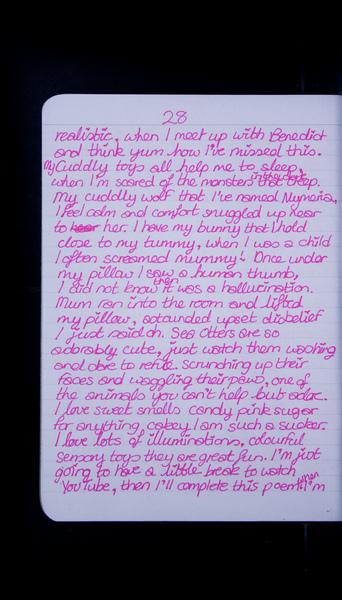 28
realistic, when I meet up with Benedict
and think yum how I've missed this.
My Cuddly toys all help me to sleep,
when I'm scared of the monsters in the dark that creep.
My cuddly wolf that I've named Nymeria,
I feel calm and comfort snuggled up near
to her. I have my bunny that I hold
close to my tummy, when I was a child
I often screamed mummy! Once under
my pillow I saw a human thumb,
I did not know then it was a hallucination.
Mum ran into the room and lifted
my pillow, astounded upset disbelief
I just said oh. Sea Otters are so
adorably cute, just watch them washing
and dare to refute. Scrunching up their
faces and waggling their paws, one of
the animals you can't help but adore.
I love sweet smells candy pink sugar
for anything cakey I am such a sucker.
I love lots of illuminations, colourful
sensory toys they are great fun. I'm just
going to have a little break to watch
YouTube, then I'll complete this poem when I'm